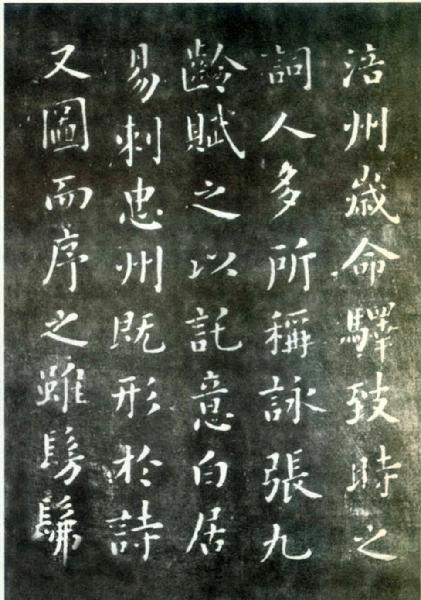 涪州歳命驛致時之
詞人多所稱詠張九
齡賦之以託意白居
易刺忠州既形於詩
又圖而序之雖髣髴